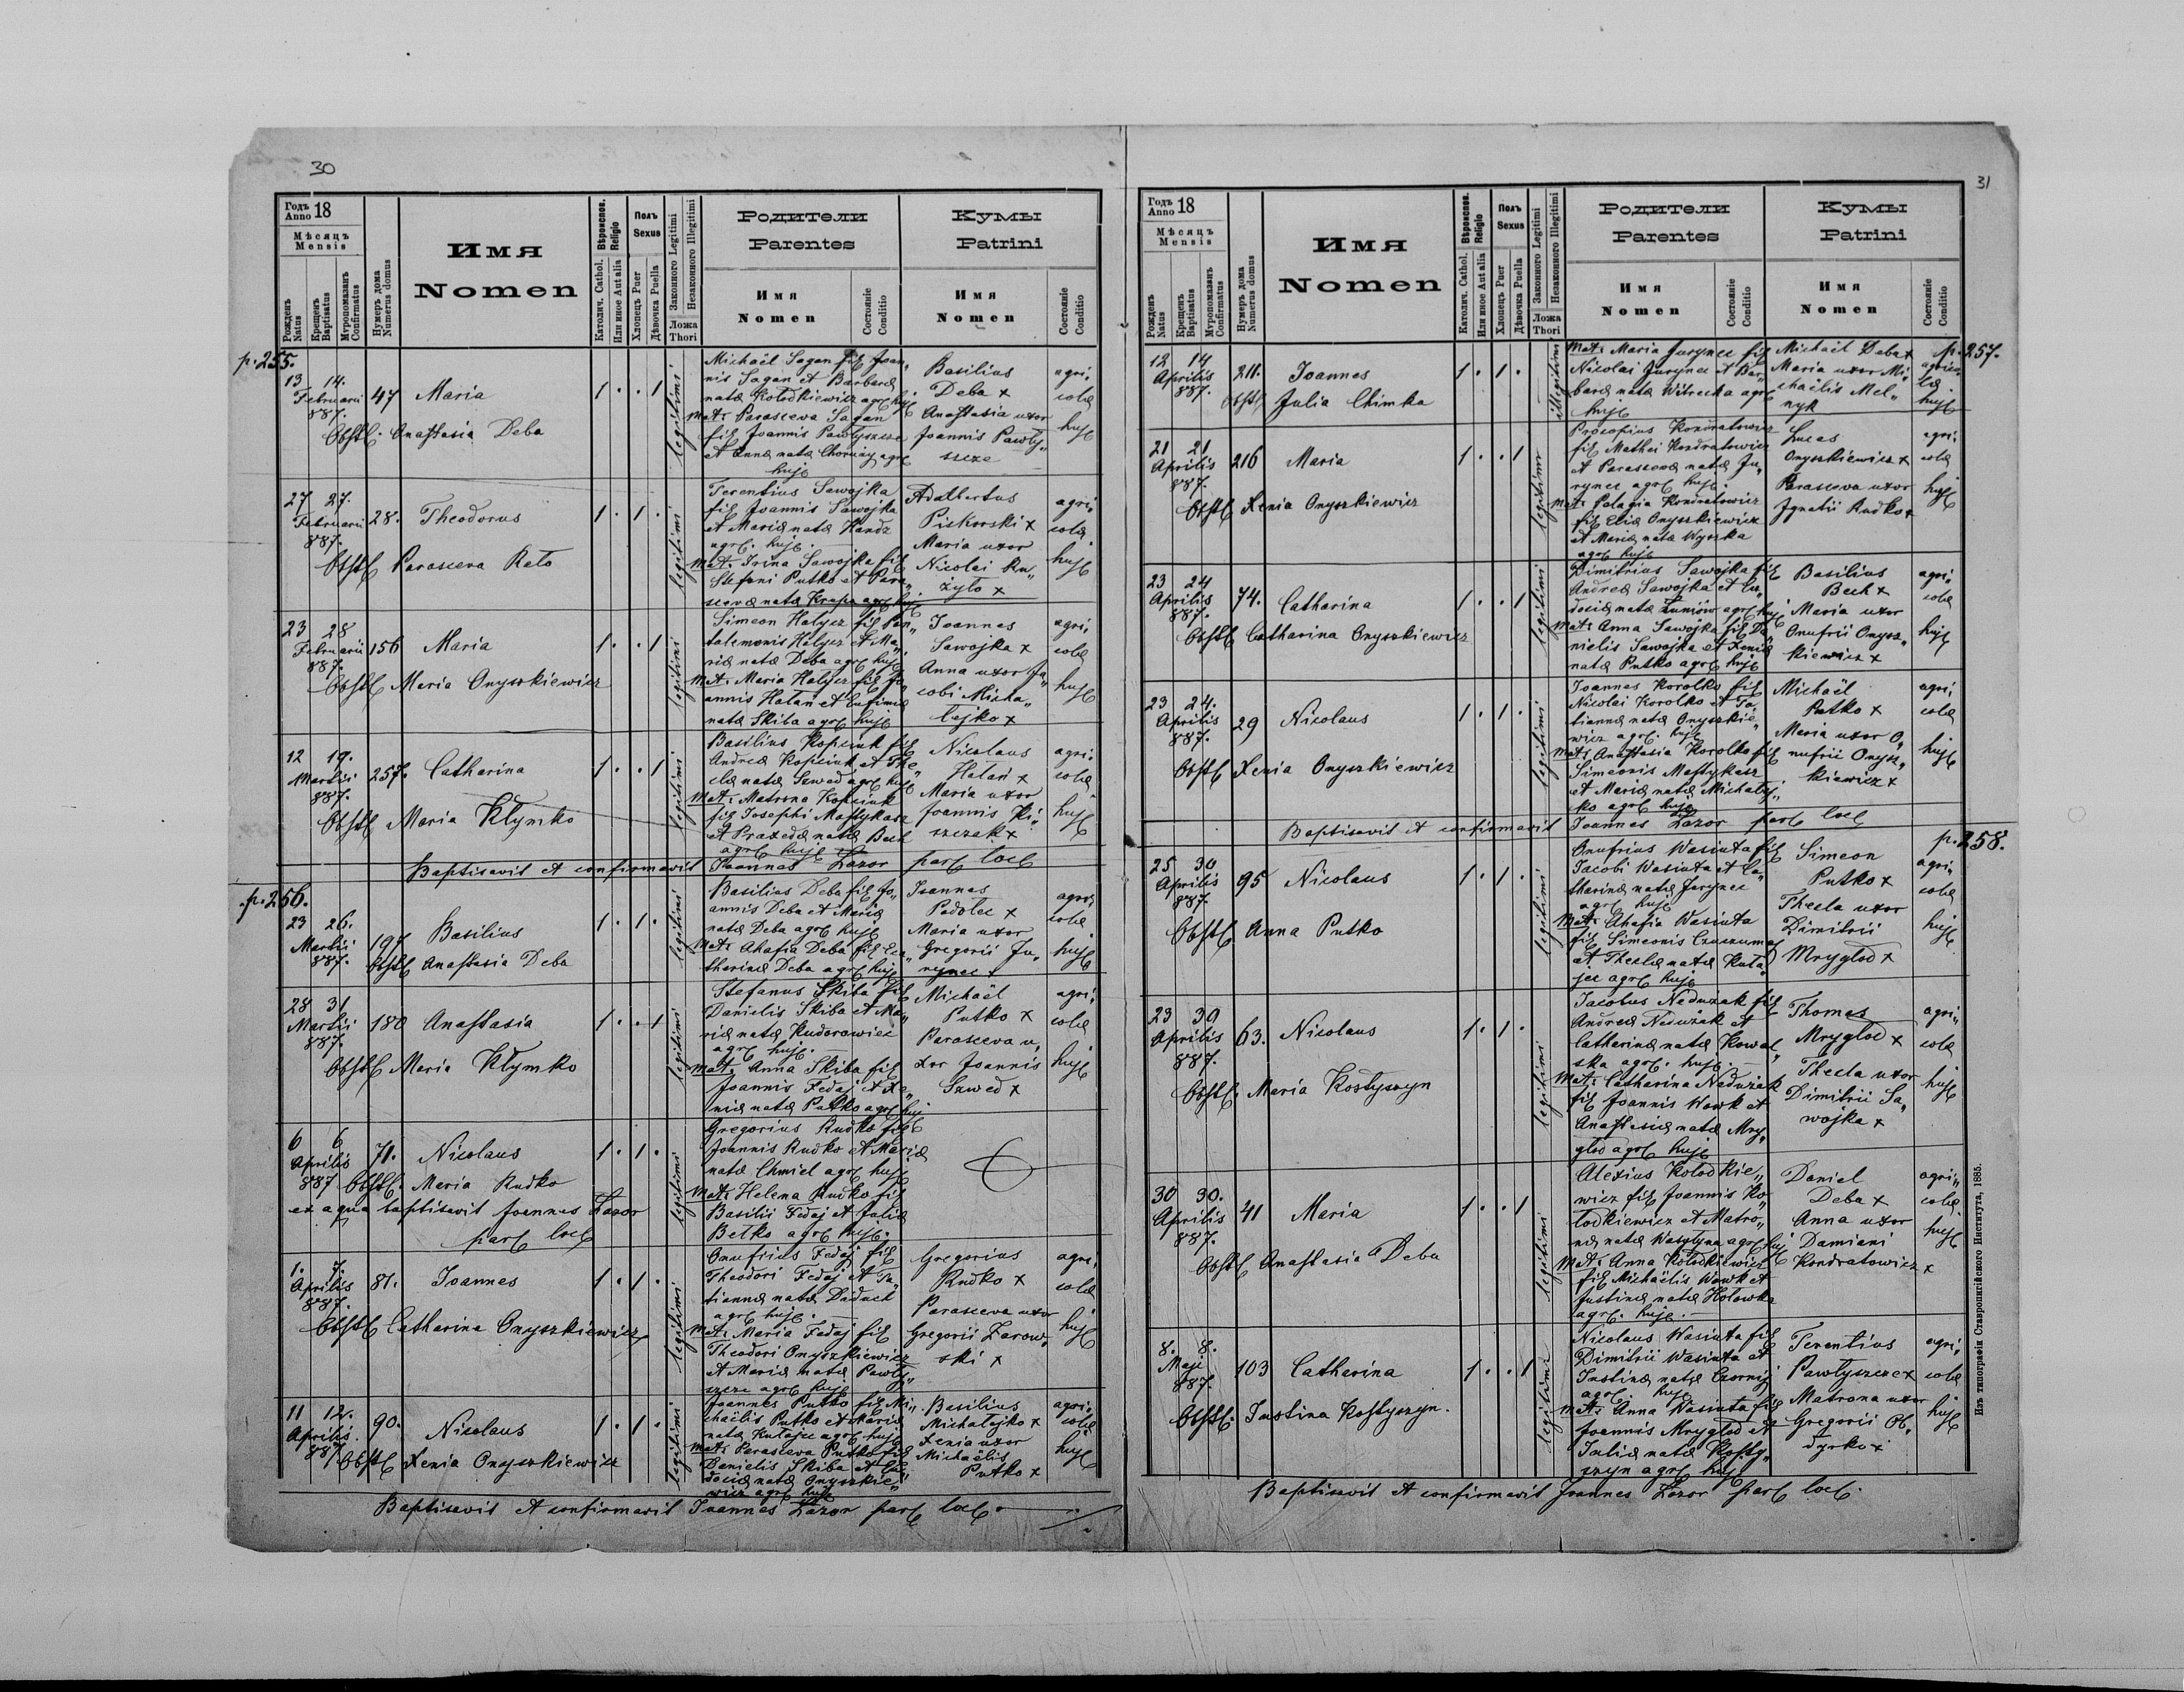 30
Годъ Anno 18
Мѣсяцъ Mensis
Рожденъ Natus
Крещенъ Baptisatus
Муропомазанъ Confirmatus
Нумеръ дома Numerus domus
Имя Nomen
Вѣроиспов. Religio
Католич. Cathol.
Или иное Aut alia
Полъ Sexus
Хлопецъ Puer
Дѣвочка Puella
Законного Legitimi
Незаконного Illegitimi
Ложа Thori
Родители Parentes
Имя Nomen
Состояніе Conditio
Кумы Patrini
Имя Nomen
Состояніе Conditio
p. 255.
13 14. Februarii 887. 47 Maria 1 . . 1 legitimi
Obst. Anastasia Deba
Michaël Sagan fil Joan„
nis Sagan et Barbara
nata Kołodkiewicz agrl huj
Mat: Parasceva Sagan
fil Joannis Pawłyszcze
et Anna nata Chorniy agrl
huj
Basilius
Deba x
Anastasia uxor
Joannis Pawły„
szcze
agri„
cola
huj
27 27. Februarii 887. 28. Theodorus 1 . 1 . legitimi
Obst Parasceva Rato
Terentius Sawojka
fil Joannis Sawojka
et Maria nata Handz
agrl. huj.
Mat. Irina Sawojka fil
Stefani Putko et Para„
sceva nata Krapa agrl huj
Adalbertus
Piskorski x
Maria uxor
Nicolai Ru„
żyło x
agri„
cola
huj
23 28 Februarii 887. 156 Maria 1 . . 1 legitimi
Obst Maria Onyszkiewicz
Simeon Hałycz fil Pan„
talemonis Hałycz et Ma„
ria nata Deba agrl huj
Mat: Maria Hałycz fil Jo„
annis Hałan et Eufimia
nata Skiba agrl huj
Joannes
Sawojka x
Anna uxor Ja„
cobi Micha„
łajko x
agri„
cola
huj
12 19. Martii 887. 257. Catharina 1 . . 1 legitimi
Obst Maria Kłymko
Basilius Kopciuk fil
Andrea Kopciuk et The„
cla nata Szwed agrl huj
Mat: Matrona Kopciuk
fil Josephi Mastykasz
et Praxeda nata Bech
agrl huj
Nicolaus
Hałan x
Maria uxor
Joannis Ki„
szczak x
agri„
cola
huj
Baptisavit et confirmavit Joannes Łazor par loc
p. 256.
23 26. Martii 887. 197 Basilius 1 . 1 . legitimi
Obst Anastasia Deba
Basilius Deba fil Jo„
annis Deba et Maria
nata Deba agrl huj
Mat: Ahafia Deba fil Ca„
tharina Deba agrl huj
Joannes
Padolec x
Maria uxor
Gregorii Ju„
rynec x
agri„
cola
huj
28 31 Martii 887. 180 Anastasia 1 . . 1 legitimi
Obst Maria Kłymko
Stefanus Skiba fil
Danielis Skiba et Ma„
ria nata Kudorowicz
agrl huj.
Mat. Anna Skiba fil
Joannis Fedaj et Xe„
nia nata Putko agrl huj
Michaël
Putko x
Parasceva u„
xor Joannis
Szwed x
agri„
cola
huj
6 6 Aprilis 887 71. Nicolaus 1 . 1 . legitimi
Obst. Maria Rudko
ex aqua baptisavit Joannes Łazor
par loc
Gregorius Rudko fil
Joannis Rudko et Maria
nata Chmiel agrl huj
Mat: Helena Rudko fil
Basilii Fedaj et Julia
Betko agrl huj.
1. 7. Aprilis 887. 81. Joannes 1 . 1 . legitimi
Obst Catharina Onyszkiewicz
Onufrius Fedaj fil
Theodori Fedaj et Ta„
tianna nata Diduch
agrl huj.
Mat: Maria Fedaj fil
Theodori Onyszkiewicz
et Maria nata Pawły„
szcze agrl huj
Gregorius
Rudko x
Parasceva uxor
Gregorii Zarow„
ski x
agri„
cola
huj
11 12. Aprilis 887. 90. Nicolaus 1 . 1 . legitimi
Obst Xenia Onyszkiewicz
Joannes Putko fil Mi„
chaëlis Putko et Maria
nata Kułajec agrl huj
Mat: Parasceva Putko fil
Danielis Skiba et Eu„
docia nata Onyszkie„
wicz agrl huj
Basilius
Michałajko x
Xenia uxor
Michaëlis
Putko x
agri„
cola
huj
Baptisavit et confirmavit Joannes Łazor par loc
31
Годъ Anno 18
Мѣсяцъ Mensis
Рожденъ Natus
Крещенъ Baptisatus
Муропомазанъ Confirmatus
Нумеръ дома Numerus domus
Имя Nomen
Вѣроиспов. Religio
Католич. Cathol.
Или иное Aut alia
Полъ Sexus
Хлопецъ Puer
Дѣвочка Puella
Законного Legitimi
Незаконного Illegitimi
Ложа Thori
Родители Parentes
Имя Nomen
Состояніе Conditio
Кумы Patrini
Имя Nomen
Состояніе Conditio
p. 257.
12 14 Aprilis 887. 211. Joannes 1 . 1 . illegitimi
Obst Julia Chimka
Mat: Maria Jurynec fil
Nicolai Jurynec et Bar„
bara nata Witrecka agrl
huj
Michaël Deba x
Maria uxor Mi„
chaëlis Mel„
nyk
agrico„
la
huj
21 21 Aprilis 887. 216 Maria 1 . . 1 legitimi
Obst Xenia Onyszkiewicz
Procopius Kondratowicz
fil Mathei Kondratowicz
et Parasceva nata Ju„
rynec agrl huj.
Mat: Palagia Kondratowicz
fil Elia Onyszkiewicz
et Maria nata Wyszka
agrl huj
Lucas
Onyszkiewicz x
Parasceva uxor
Ignatii Rudko x
agri„
cola
huj
23 24 Aprilis 887. 74. Catharina 1 . . 1 legitimi
Obst Catharina Onyszkiewicz
Dimitrius Sawojka fil
Andrea Sawojka et Eu„
docia nata Łuniów agrl huj
Mat: Anna Sawojka fil Da„
nielis Sawojka et Xenia
nata Putko agrl huj
Basilius
Bech x
Maria uxor
Onufrii Onysz„
kiewicz x
agri„
cola
huj
23 24. Aprilis 887. 29 Nicolaus 1 . 1 . legitimi
Obst Xenia Onyszkiewicz
Joannes Korolko fil
Nicolai Korolko et Ta„
tianna nata Onyszkie„
wicz agrl. huj
Mat: Anastasia Korolko fil
Simeonis Mastykasz
et Maria nata Michałaj„
ko agrl huj
Michaël
Putko x
Maria uxor O„
nufrii Onysz„
kiewicz x
agri„
cola
huj
Baptisavit et confirmavit Joannes Łazor par loc
p. 258.
25 30 Aprilis 887. 95 Nicolaus 1 . 1 . legitimi
Obst Anna Putko
Onufrius Wasiuta fil
Jacobi Wasiuta et Ca„
tharina nata Jurynec
agrl huj
Mat: Ahafia Wasiuta
fil Simeonis Czuczuman
et Thecla nata Kuła„
jec agrl huj
Simeon
Putko x
Thecla uxor
Dimitrii
Mrygłod x
agri„
cola
huj
23 30 Aprilis 887. 63. Nicolaus 1 . 1 . legitimi
Obst. Maria Kostyszyn
Jacobus Nedużak fil
Andrea Nedużak et
Catharina nata Kowal„
ska agrl. huj.
Mat: Catharina Nedużak
fil Joannis Wowk et
Anastasia nata Mry„
głod agrl huj
Thomas
Mrygłod x
Thecla uxor
Dimitrii Sa„
wojka x
agri„
cola
huj
30 30. Aprilis 887. 41 Maria 1 . . 1 legitimi
Obst Anastasia Deba
Alexius Kołodkie„
wicz fil Joannis Ko„
łodkiewicz et Matro„
na nata Wasyłyna agrl huj
Mat: Anna Kołodkiewicz
fil Michaëlis Wowk et
Justina nata Hołowka
agrl. huj.
Daniel
Deba x
Anna uxor
Damiani
Kondratowicz x
agri„
cola
huj
8. 8. Maji 887. 103 Catharina 1 . . 1 legitimi
Obst. Justina Kostyszyn.
Nicolaus Wasiuta fil
Dimitrii Wasiuta et
Justina nata Czornij
agrl huj
Mat: Anna Wasiuta fil
Joannis Mrygłod et
Julia nata Kosty„
szyn agrl huj
Terentius
Pawłyszcze x
Matrona uxor
Gregorii Ob„
dyrko x
agri„
cola
huj
Baptisavit et confirmavit Joannes Łazor par loc.
Изъ типографіи Ставропигійского Института, 1885.